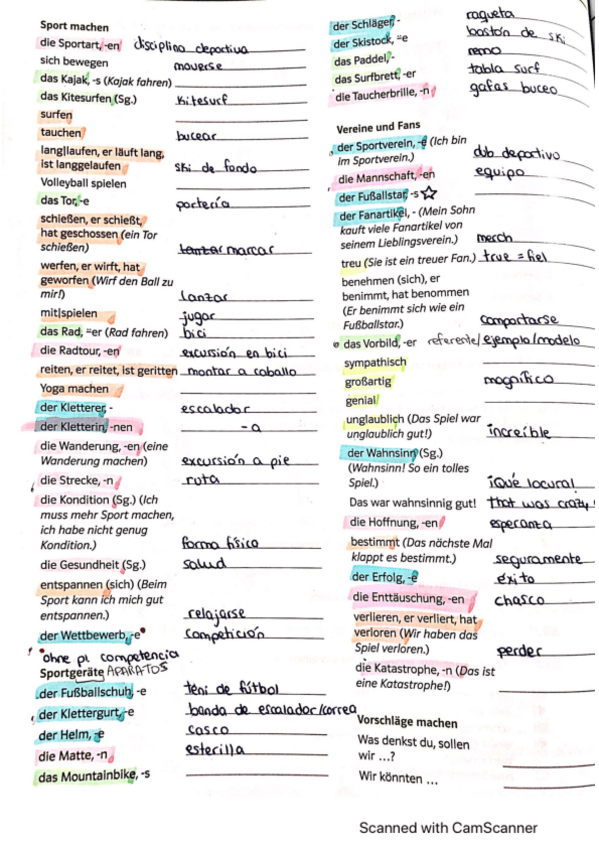 Sport machen
die Sportart, -en disciplina deportiva
sich bewegen moverse
das Kajak, -s (Kajak fahren)
das Kitesurfen (Sg.) kitesurf
surfen
tauchen bucear
lang|laufen, er läuft lang,
ist langgelaufen ski de fondo
Volleyball spielen
das Tor, -e portería
schießen, er schießt,
hat geschossen (ein Tor
schießen) marcar
werfen, er wirft, hat
geworfen (Wirf den Ball zu
mir!) lanzar
mit|spielen jugar
das Rad, =er (Rad fahren) bici
die Radtour, -en excursión en bici
reiten, er reitet, ist geritten montar a caballo
Yoga machen
der Kletterer, - escalador
der Kletterin, -nen -a
die Wanderung, -en (eine
Wanderung machen) excursión a pie
die Strecke, -n ruta
die Kondition (Sg.) (Ich
muss mehr Sport machen,
ich habe nicht genug
Kondition.) forma físico
die Gesundheit (Sg.) salud
entspannen (sich) (Beim
Sport kann ich mich gut
entspannen.) relajarse
der Wettbewerb, -e* competición
*ohne pl. competencia
Sportgeräte APARATOS
der Fußballschuh, -e teni de fútbol
der Klettergurt, -e banda de escalador/correa
der Helm, -e casco
die Matte, -n esterilla
das Mountainbike, -s
der Schläger, - raqueta
der Skistock, =e bastón de ski
das Paddel, - remo
das Surfbrett, -er tabla surf
die Taucherbrille, -n gafas buceo
Vereine und Fans
der Sportverein, -e (Ich bin
im Sportverein.) club deportivo
die Mannschaft, -en equipo
der Fußballstar, -s
der Fanartikel, - (Mein Sohn
kauft viele Fanartikel von
seinem Lieblingsverein.) merch
treu (Sie ist ein treuer Fan.) true = fiel
benehmen (sich), er
benimmt, hat benommen
(Er benimmt sich wie ein
Fußballstar.) comportarse
das Vorbild, -er referente/ejemplo/modelo
sympathisch
großartig magnífico
genial
unglaublich (Das Spiel war
unglaublich gut!) increíble
der Wahnsinn (Sg.)
(Wahnsinn! So ein tolles
Spiel.) ¡Qué locura!
Das war wahnsinnig gut! That was crazy
die Hoffnung, -en esperanza
bestimmt (Das nächste Mal
klappt es bestimmt.) seguramente
der Erfolg, -e éxito
die Enttäuschung, -en chasco
verlieren, er verliert, hat
verloren (Wir haben das
Spiel verloren.) perder
die Katastrophe, -n (Das ist
eine Katastrophe!)
Vorschläge machen
Was denkst du, sollen
wir ...?
Wir könnten ...
Scanned with CamScanner